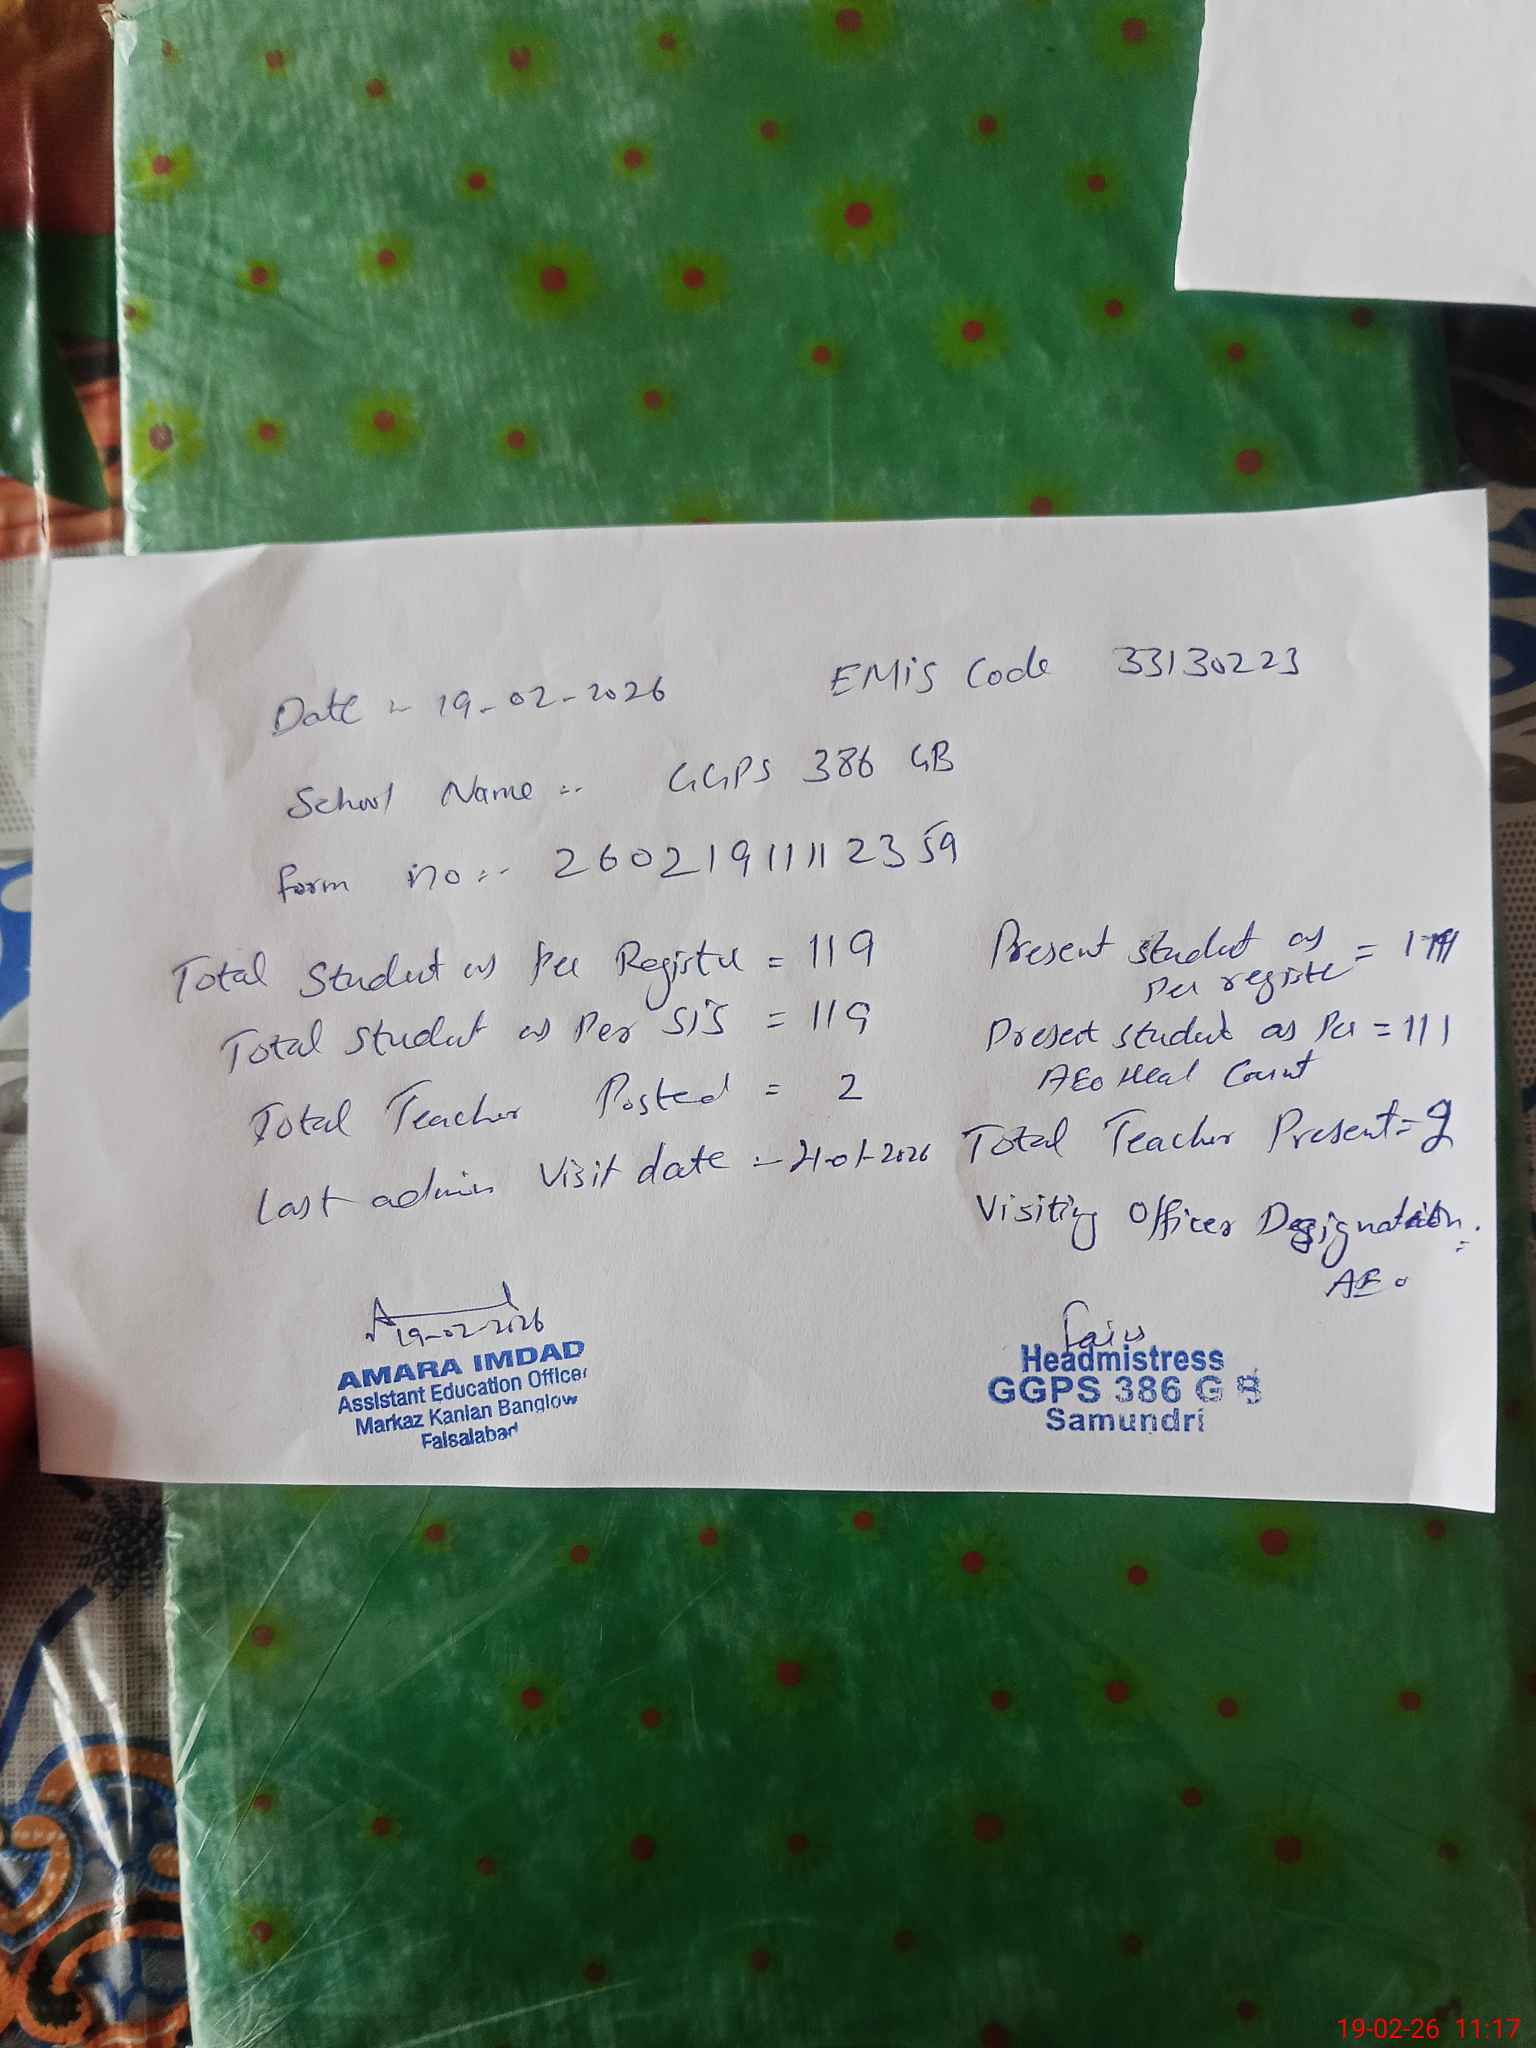 Date :- 19-02-2026 EMIS Code 33130223
School Name :- GGPS 386 GB
Form no :- 26021911112359
Total Student as Per Register = 119
Present student as per register =
Total student as Per SIS = 119
Present student as Per AEO Head Count = 111
Total Teacher Posted = 2
Total Teacher Present = 2
Last admin Visit date :- 21-01-2026
Visiting Officer Designation =
AEO
19-02-2026
AMARA IMDAD
Assistant Education Officer
Markaz Kanian Banglow
Faisalabad
Headmistress
GGPS 386 GB
Samundri
19-02-26 11:17